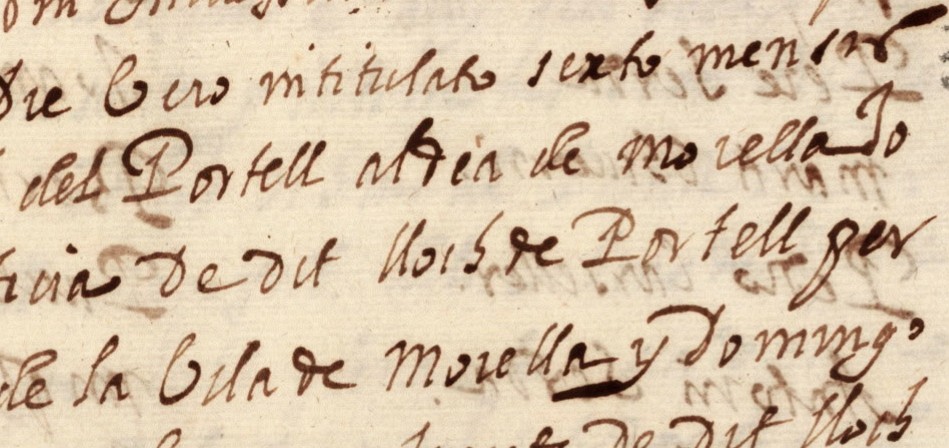 Die Vero intitulato sexto mensis
del Portell aldea de Morella Jo
ticia de dit lloch de Portell per
de la Vila de Morella y Domingo
de dit lloch